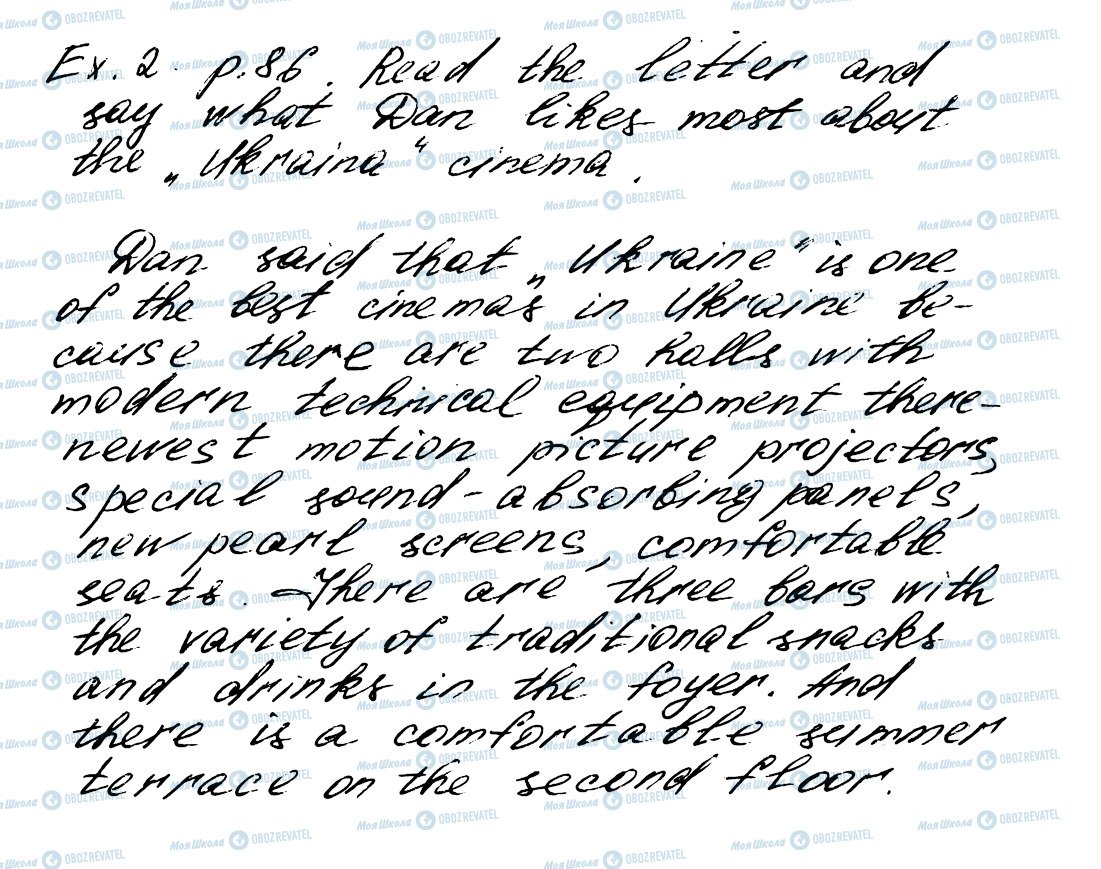 Ex. 2. p.86. Read the letter and
say what Dan likes most about
the „Ukraina“ cinema.
Dan said that „Ukraine“ is one
of the best cinema's in Ukraine be-
cause there are two halls with
modern technical equipment there-
newest motion picture projectors,
special sound-absorbing panels,
new pearl screens, comfortable
seats. There are three bars with
the variety of traditional snacks
and drinks in the foyer. And
there is a comfortable summer
terrace on the second floor.